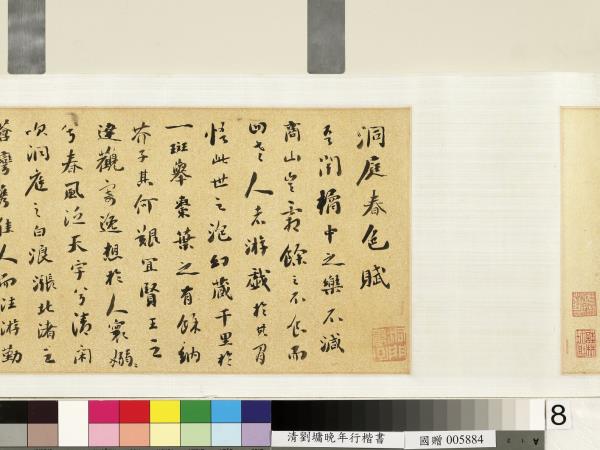 洞庭春色賦
吾聞橘中之樂不減
商山豈霜餘之不食而
四老人者游戲於其間
悟此世之泡幻藏千里於
一斑舉棗葉之有餘納
芥子其何艱宜賢王之
達觀寄逸想於人寰嫋〻
兮春風泛天宇兮清閑
吹洞庭之白浪漲北渚之
蒼灣攜佳人而往游勤
8
清劉墉晚年行楷書
國贈 005884
A 1 2